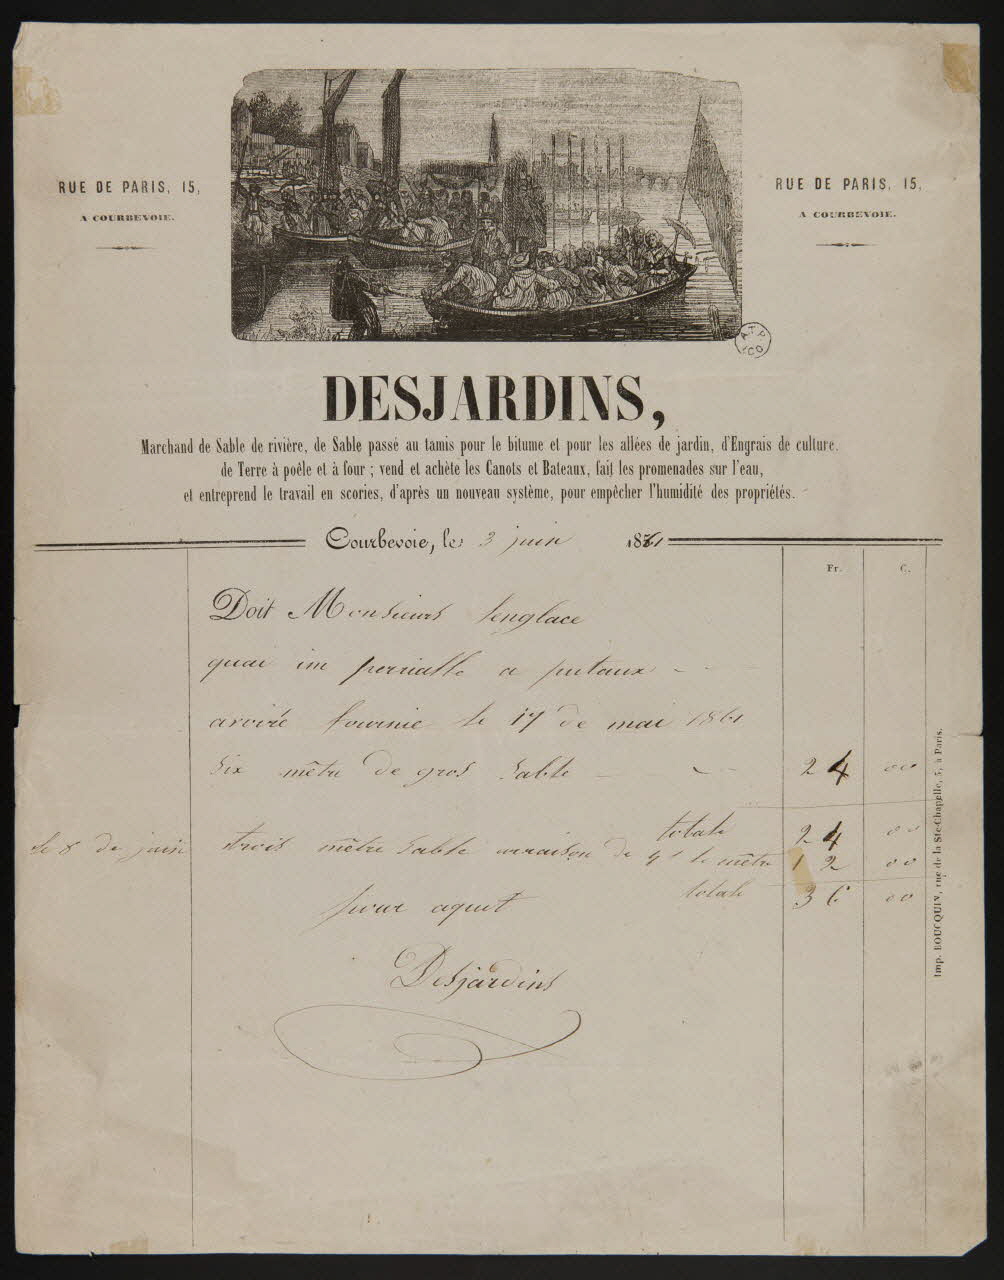 RUE DE PARIS, 15,
A COURBEVOIE.
RUE DE PARIS, 15,
A COURBEVOIE.
A.T.P.
DESJARDINS,
Marchand de Sable de rivière, de Sable passé au tamis pour le bitume et pour les allées de jardin, d'Engrais de culture.
de Terre à poêle et à four ; vend et achète les Canots et Bateaux, fait les promenades sur l'eau,
et entreprend le travail en scories, d'après un nouveau système, pour empêcher l'humidité des propriétés.
Courbevoie, le 3 juin 1861
Fr. C.
Doit Monsieurs lenglace
quai im perrialle a putaux
avoire fournie le 17 de mai 1861
Six mêtre de gros Sable 24 00
totale 24 00
le 8 de juin trois mêtre Sable arraison de 4f le mêtre 12 00
totale 36 00
pour aquit
Desjardins
Imp. BOUCQUIN, rue de la Ste-Chapelle, 5, à Paris.